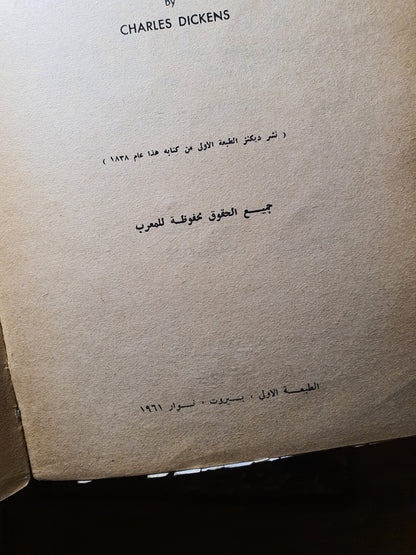 by
CHARLES DICKENS
( نشر ديكنز الطبعة الاولى من كتابه هذا عام ١٨٣٨ )
جميع الحقوق محفوظة للمعرب
الطبعة الاولى ، بيروت ، نوار ١٩٦١